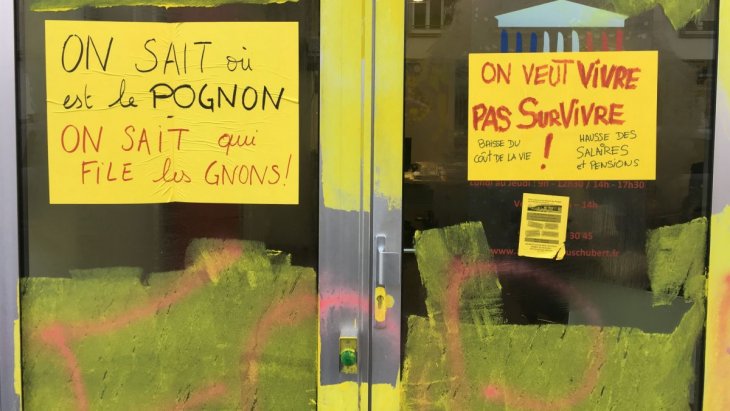 ON SAIT où
est le POGNON
ON SAIT qui
FILE les GNONS!
ON VEUT VIVRE
PAS SURVIVRE
!
BAISSE DU
COÛT DE LA VIE
HAUSSE DES
SALAIRES
et PENSIONS
Lundi au Jeudi : 9h - 12h30 / 14h - 17h30
- 14h
30 45
schubert.fr